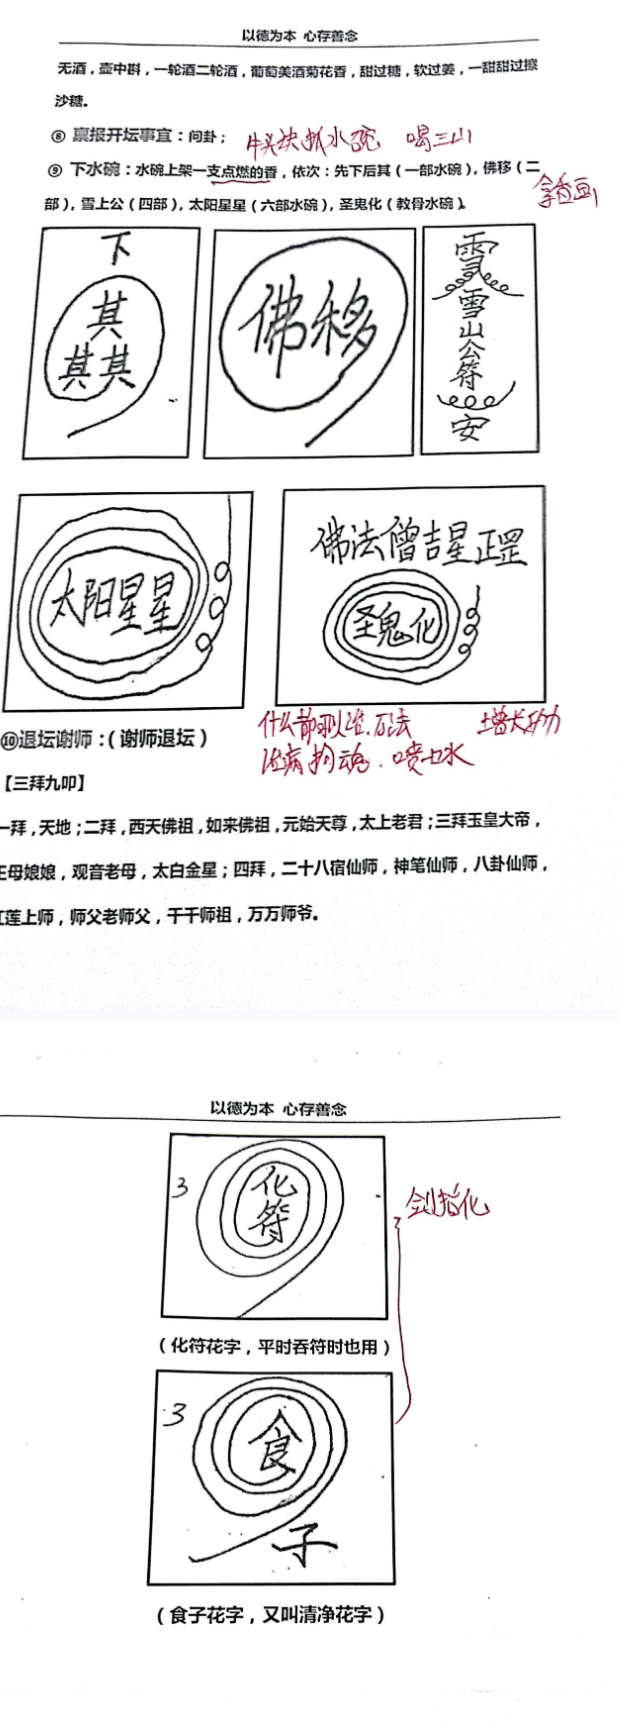 以德为本 心存善念
无酒，壶中斟，一轮酒二轮酒，葡萄美酒菊花香，甜过糖，软过姜，一甜甜过擦
沙糖。
⑧ 禀报开坛事宜：问卦；
喝三山
⑨ 下水碗：水碗上架一支点燃的香，依次：先下后其（一部水碗），佛移（二
拿香画
部），雪上公（四部），太阳星星（六部水碗），圣鬼化（教骨水碗）。
下
其
其其
佛移
雪山公符
安
太阳星星
佛法僧吉星正罡
圣鬼化
⑩退坛谢师：（谢师退坛）
增长功力
治病
【三拜九叩】
一拜，天地；二拜，西天佛祖，如来佛祖，元始天尊，太上老君；三拜玉皇大帝，
王母娘娘，观音老母，太白金星；四拜，二十八宿仙师，神笔仙师，八卦仙师，
红莲上师，师父老师父，千千师祖，万万师爷。
以德为本 心存善念
3
化
符
剑指化
（化符花字，平时吞符时也用）
3
食
子
（食子花字，又叫清净花字）